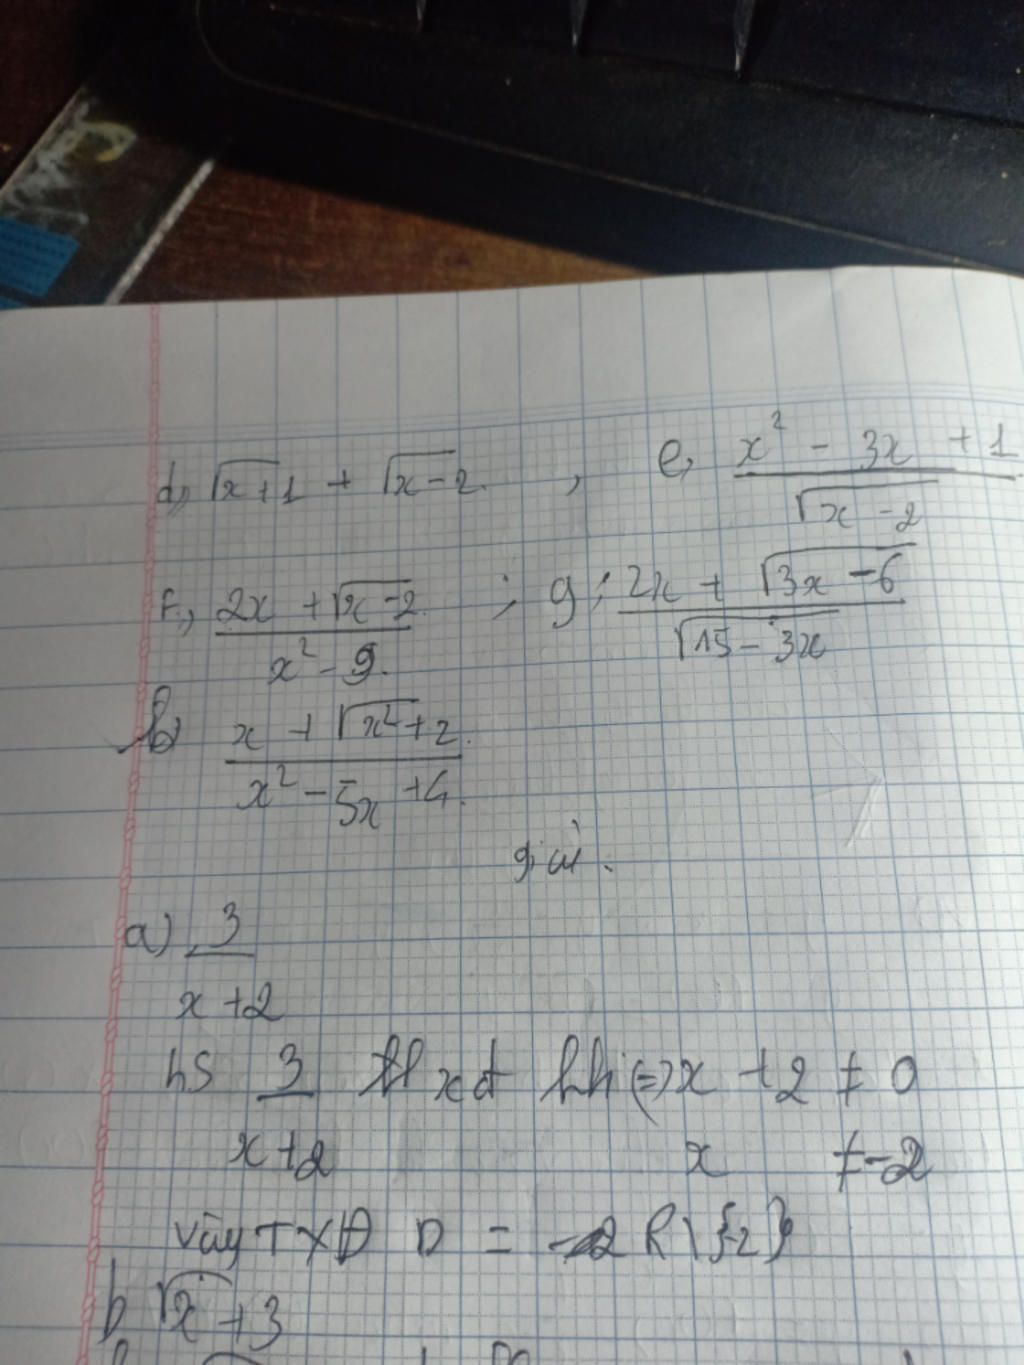 d, √x+1 + √x-2 , e, x² - 3x + 1 / √x - 2
f, 2x + √x-2 / x² - 9 ; g; 2x + √3x - 6 / √15 - 3x
h) x + √x² + 2 / x² - 5x + 4
giải.
a) 3 / x + 2
hS 3 / x+2 xđ khi <=> x + 2 ≠ 0
x ≠ -2
Vậy TXĐ D = R \ {-2}
b √x + 3